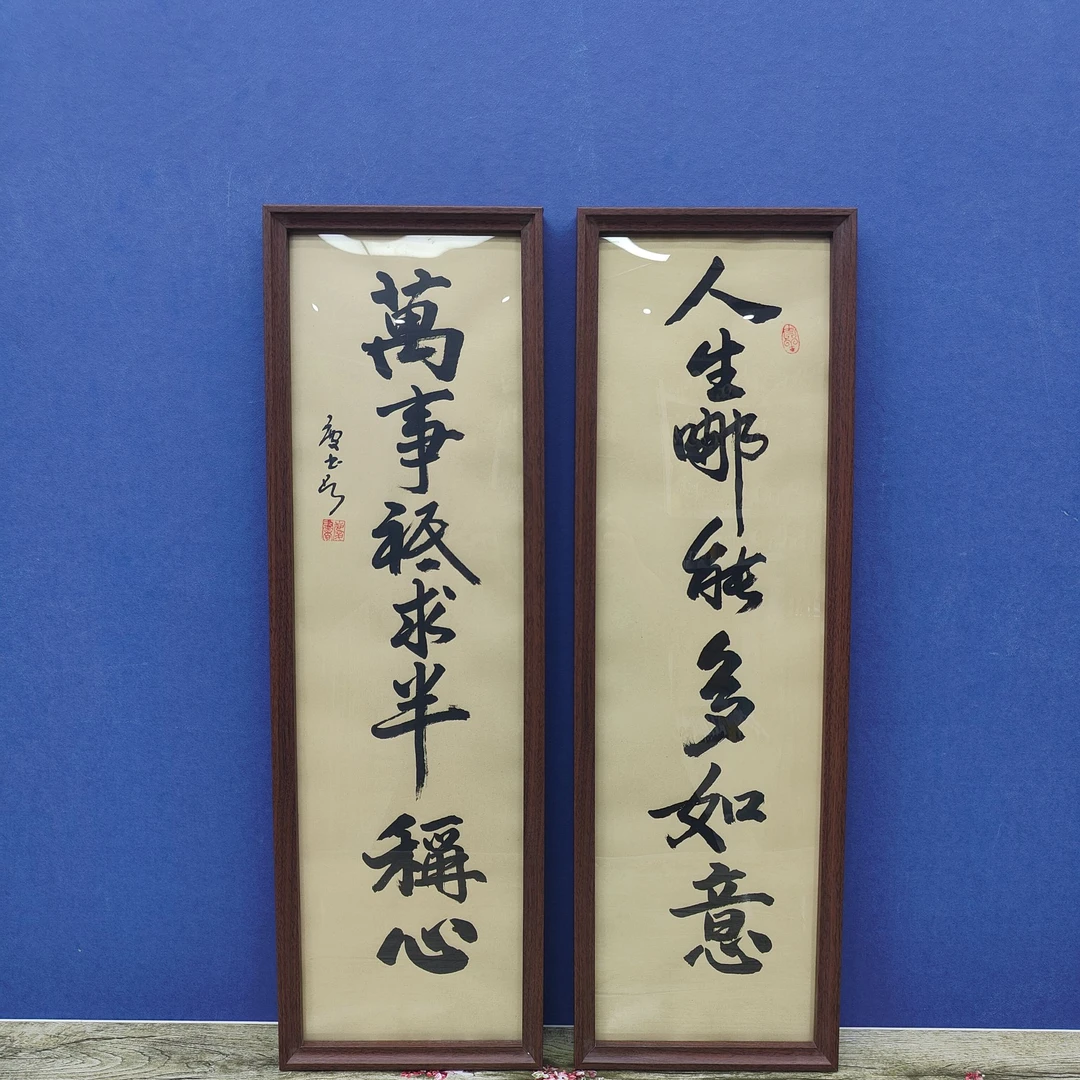 人生哪能多如意
萬事祗求半稱心